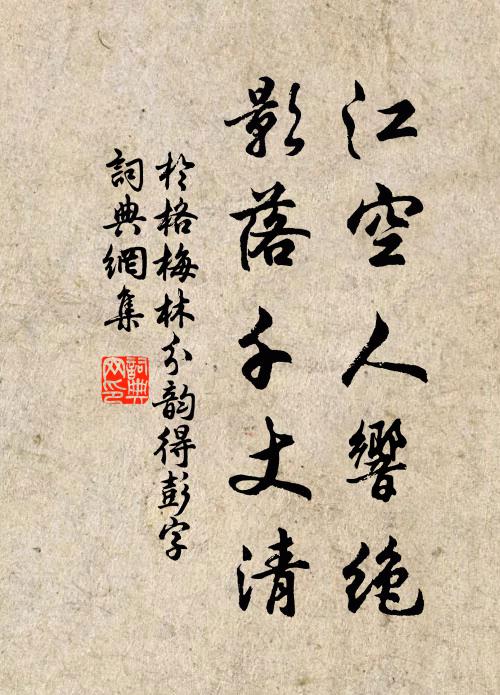 江空人響絶
影落千丈清
於格梅林分韵得彭字
詞典網集
詞典网印